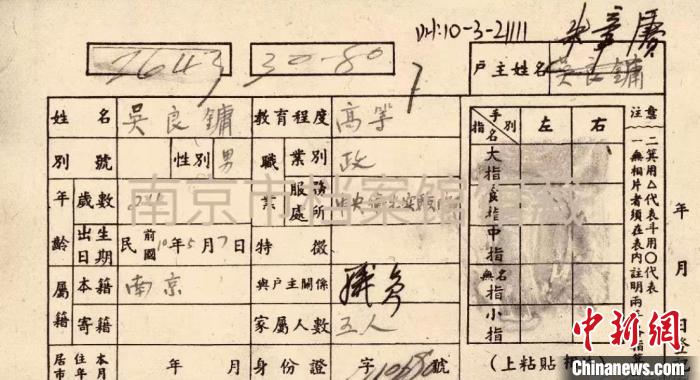 叫:10-3-21111
2643
30-80
戶主姓名 吳良鏞
姓名 吳良鏞 教育程度 高等
別號 性別 男 職業 業別 政
年齡 歲數 服務處所
出生日期 民前國10年5月7日 特徵
屬籍 本籍 南京 與戶主關係
寄籍 家屬人數 五人
居住本市年月 年 月 身份證 字 號
指名 手別 左 右
大指
食指
中指
無名指
小指
(上粘貼
注意
一無相片者須在表內註明兩手各指箕
二箕用△代表斗用〇代表
年 月 日登記
南京市档案馆馆藏
中新网
Chinanews.com